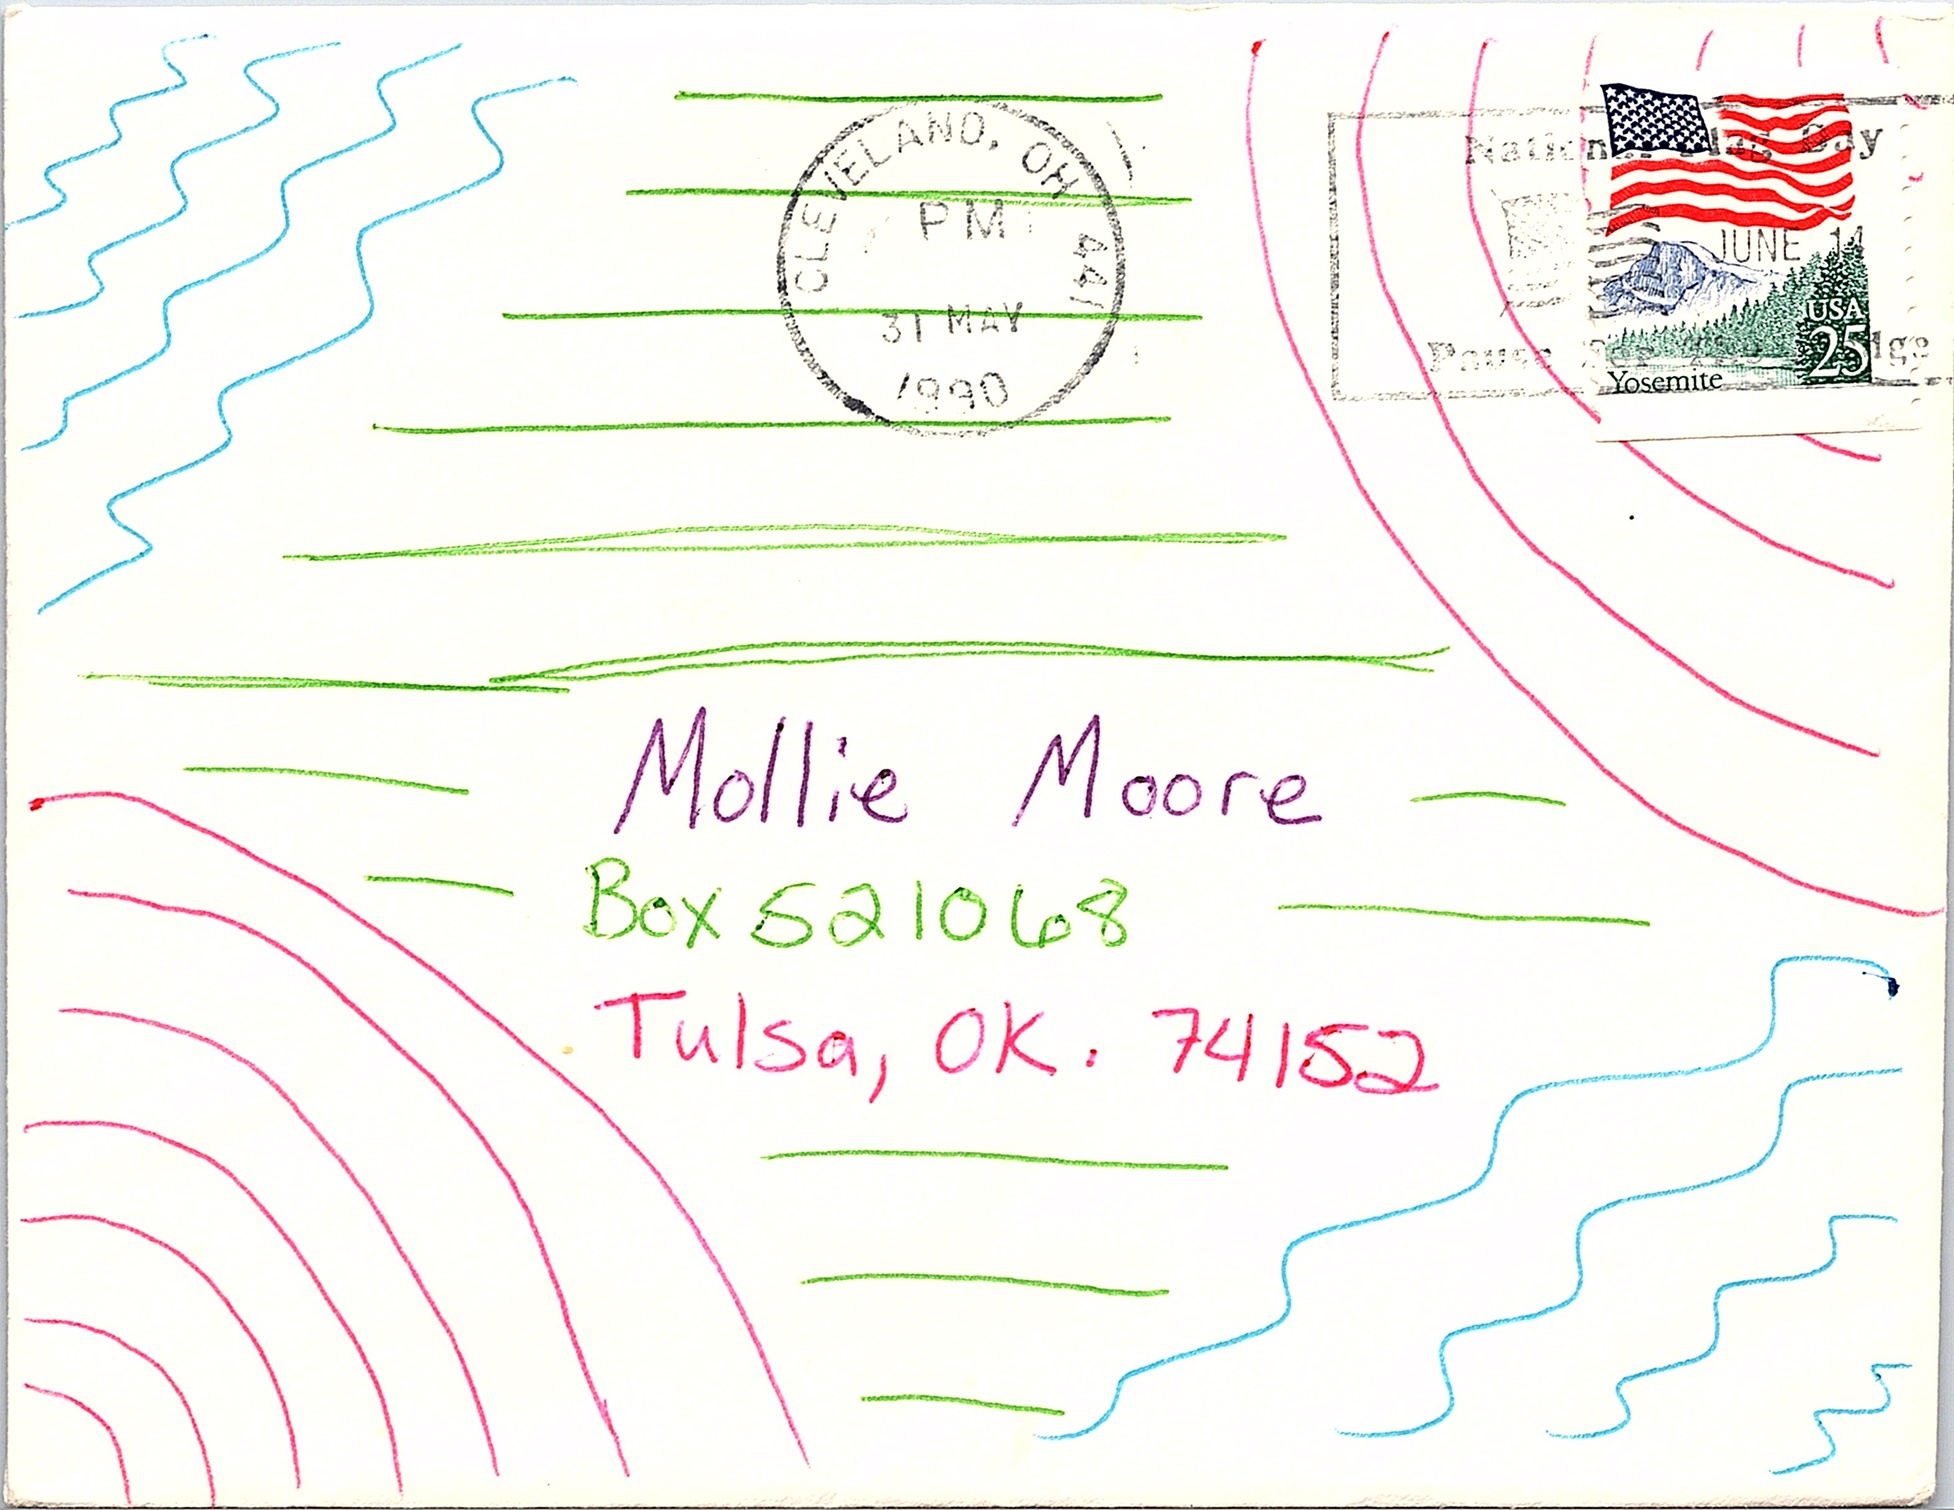 CLEVELAND, OH 441
PM
31 MAY
1990
National Flag Day
JUNE 14
Pause For The
USA
25
Yosemite
Mollie Moore
Box 521068
Tulsa, OK. 74152